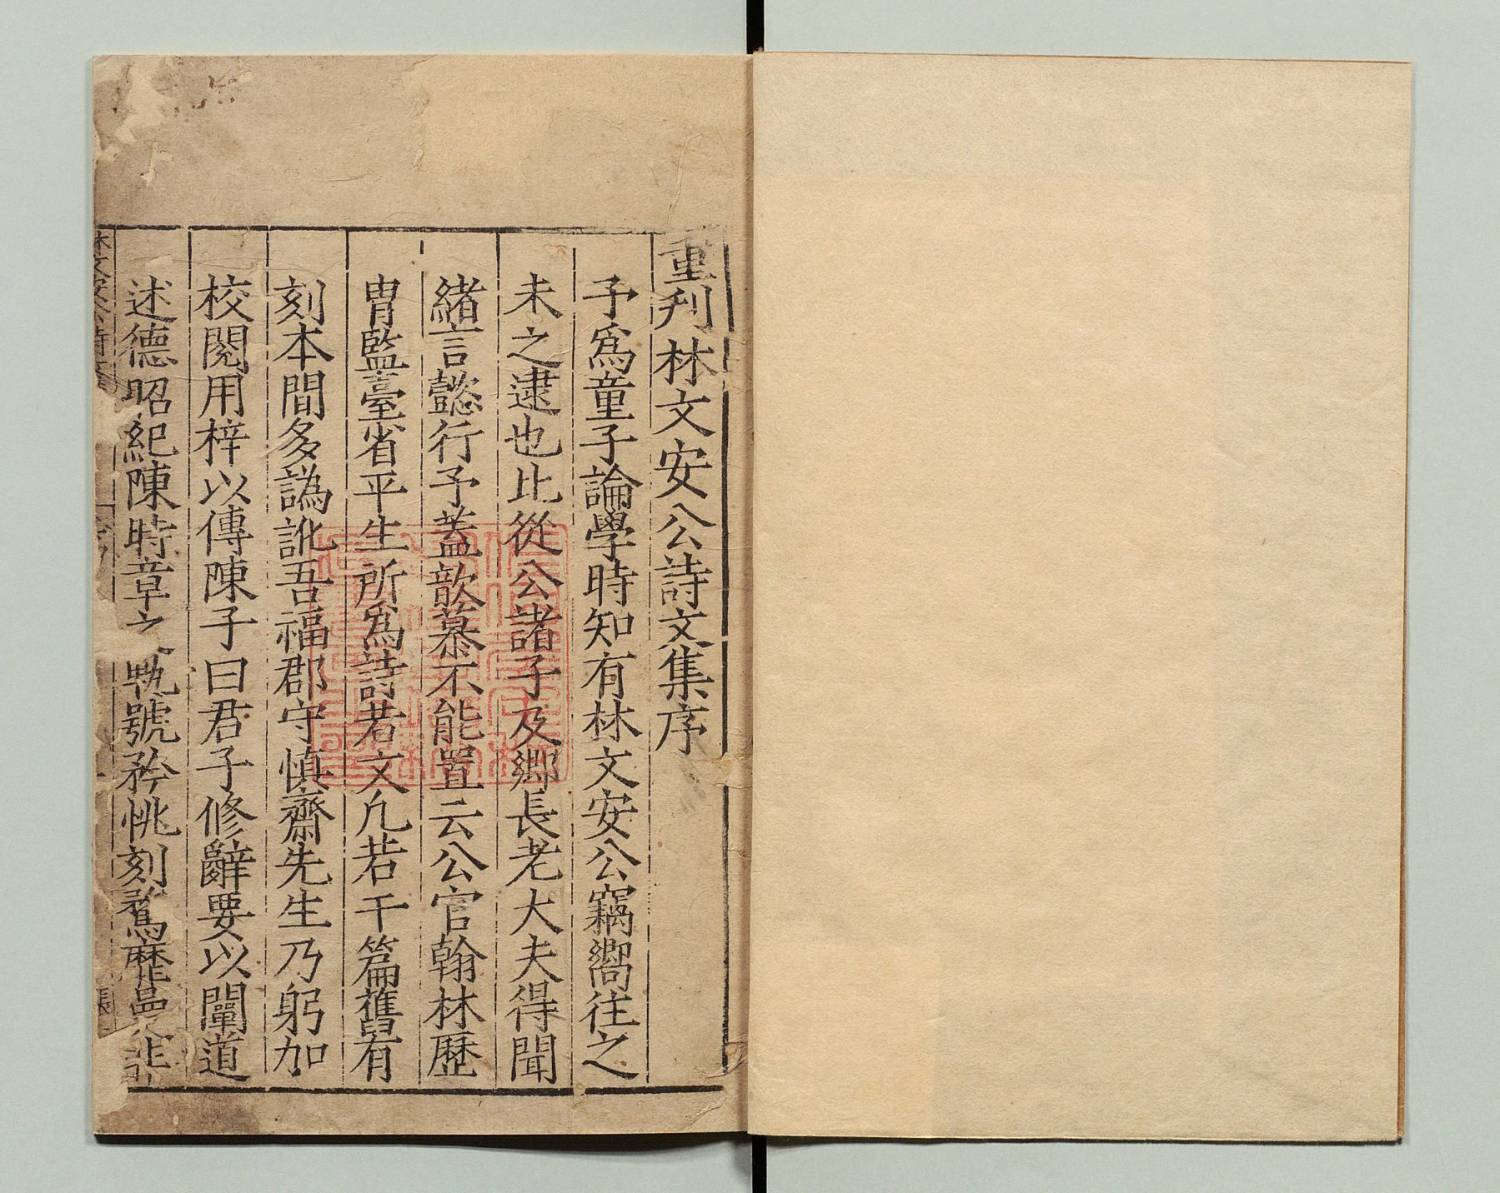 重刋林文安公詩文集序
予爲童子論學時知有林文安公竊嚮往之
未之逮也比從公諸子及鄉長老大夫得聞
緒言懿行予蓋歆慕不能置云公官翰林歷
胄監臺省平生所爲詩若文凢若干篇舊有
刻本間多譌訛吾福郡守慎齋先生乃躬加
校閱用梓以傳陳子曰君子修辭要以闡道
述德昭紀陳時章之 號矜恌刻鶩靡曼非